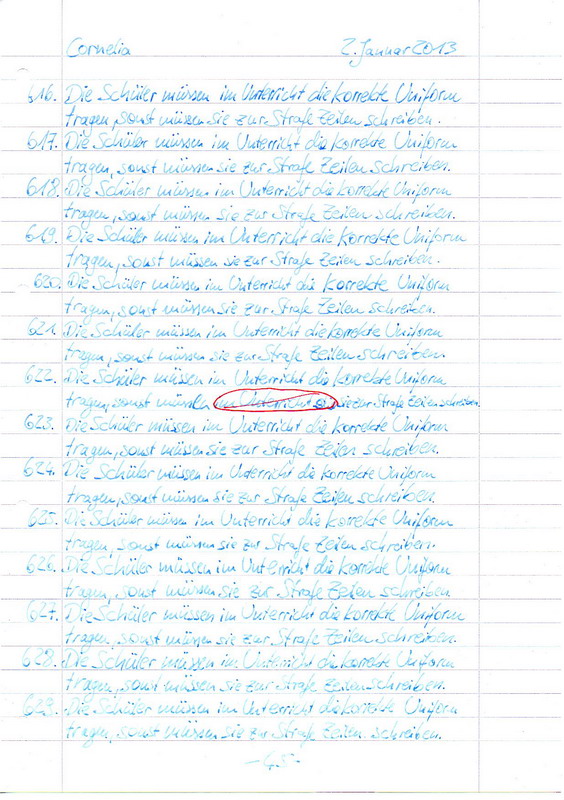 Cornelia 2. Januar 2013
616. Die Schüler müssen im Unterricht die korrekte Uniform
tragen, sonst müssen sie zur Strafe Zeilen schreiben.
617. Die Schüler müssen im Unterricht die korrekte Uniform
tragen, sonst müssen sie zur Strafe Zeilen schreiben.
618. Die Schüler müssen im Unterricht die korrekte Uniform
tragen, sonst müssen sie zur Strafe Zeilen schreiben.
619. Die Schüler müssen im Unterricht die korrekte Uniform
tragen, sonst müssen sie zur Strafe Zeilen schreiben.
620. Die Schüler müssen im Unterricht die korrekte Uniform
tragen, sonst müssen sie zur Strafe Zeilen schreiben.
621. Die Schüler müssen im Unterricht die korrekte Uniform
tragen, sonst müssen sie zur Strafe Zeilen schreiben.
622. Die Schüler müssen im Unterricht die korrekte Uniform
tragen, sonst müssen im Unterricht sie zur Strafe Zeilen schreiben.
623. Die Schüler müssen im Unterricht die korrekte Uniform
tragen, sonst müssen sie zur Strafe Zeilen schreiben.
624. Die Schüler müssen im Unterricht die korrekte Uniform
tragen, sonst müssen sie zur Strafe Zeilen schreiben.
625. Die Schüler müssen im Unterricht die korrekte Uniform
tragen, sonst müssen sie zur Strafe Zeilen schreiben.
626. Die Schüler müssen im Unterricht die korrekte Uniform
tragen, sonst müssen sie zur Strafe Zeilen schreiben.
627. Die Schüler müssen im Unterricht die korrekte Uniform
tragen, sonst müssen sie zur Strafe Zeilen schreiben.
628. Die Schüler müssen im Unterricht die korrekte Uniform
tragen, sonst müssen sie zur Strafe Zeilen schreiben.
629. Die Schüler müssen im Unterricht die korrekte Uniform
tragen, sonst müssen sie zur Strafe Zeilen schreiben.
- 45 -